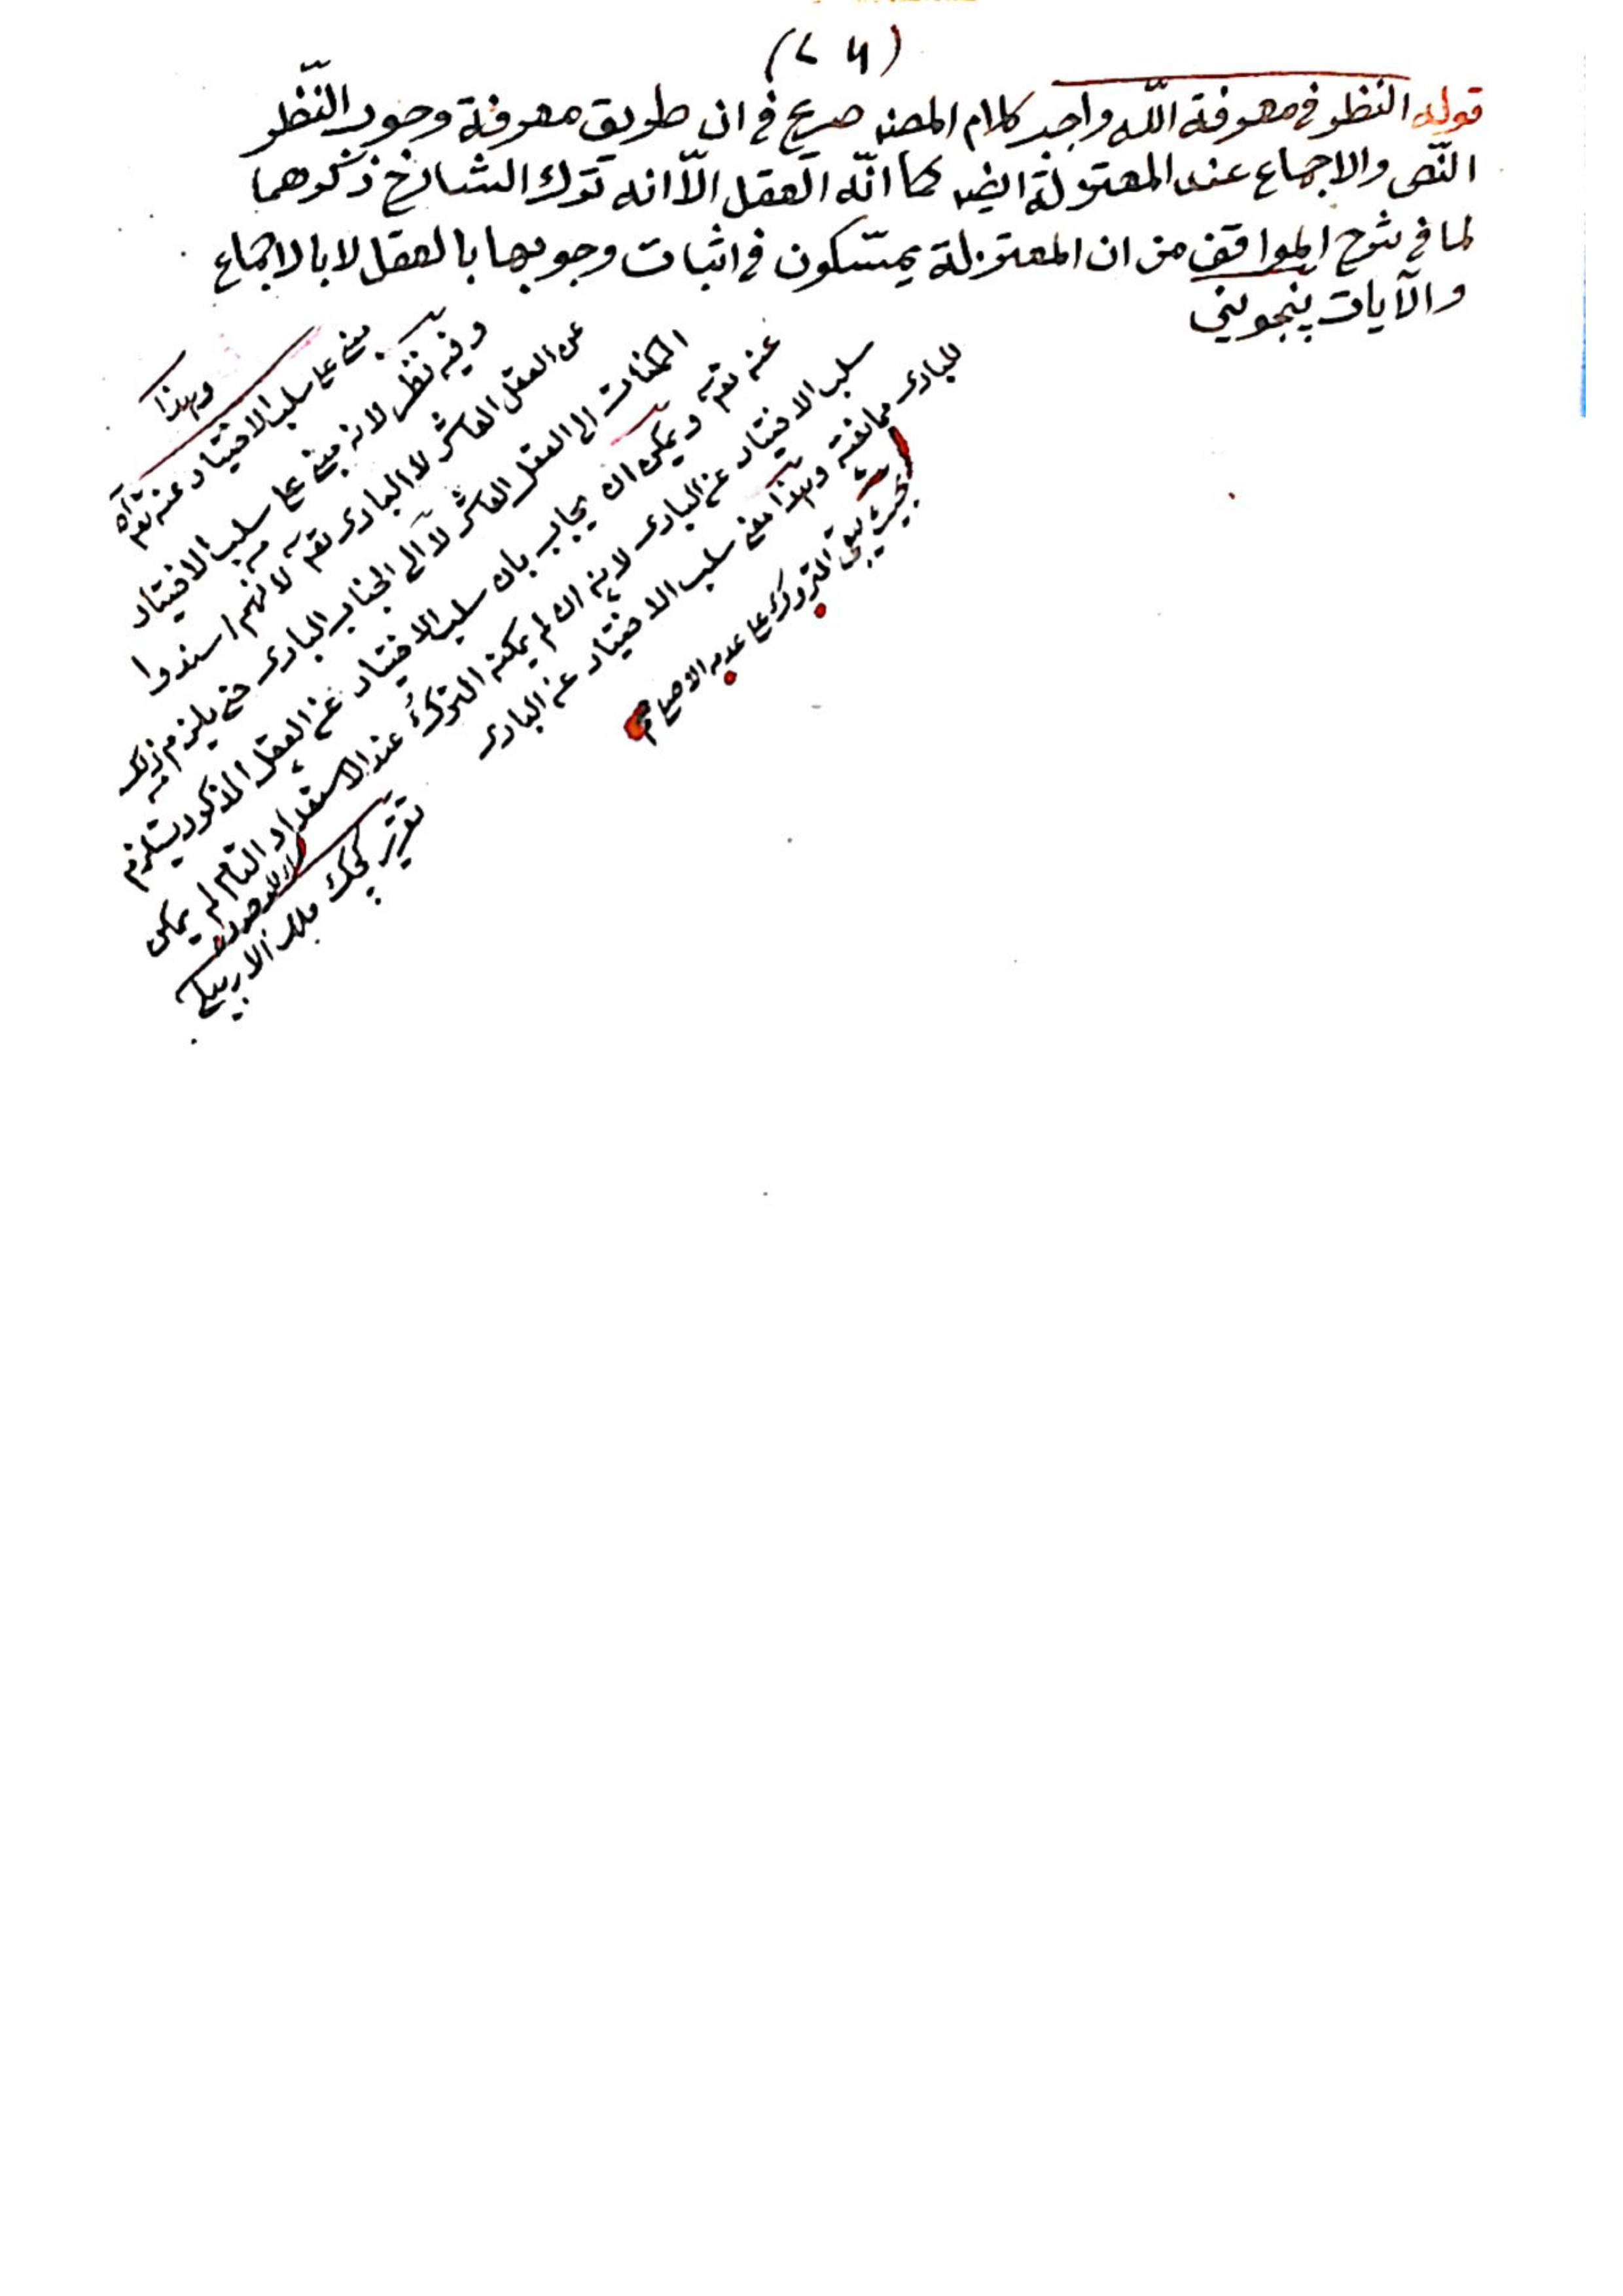 (٢٦)
قوله النظر فى معرفة الله واجب كلام المصنـ صريح فى ان طريق معرفة وجوب النّظر
النّص والاجماع عند المعتزلة ايضـ كما انّه العقل الّا انه ترك الشارح ذكرهما
لما فى شرح المواقف من ان المعتزلة يمتسّكون فى اثبات وجوبها بالعقل لا بالاجماع
والآيات پنجوينى
وهذا
مبنى على سلب الاختيار عنه تعـ
وفيه نظر لانه مبنى على سلب الاختيار
عن العقل العاشر لا البارى تعـ لانهم اسندوا
الممكنات الى العقل العاشر لا الى الجناب البارى حتى يلزم
عنه تعـ ويمكن ان يجاب بان سلب الاختيار عن العقل المذكور يستلزم
سلب الاختيار عن البارى لانه ان لم يمكنه الترك عند الاستعداد التام لم يمكن
للبارى ممانعته وهذا معنى سلب الاختيار عن البارى
تقرير كچك ملا الاربيلى